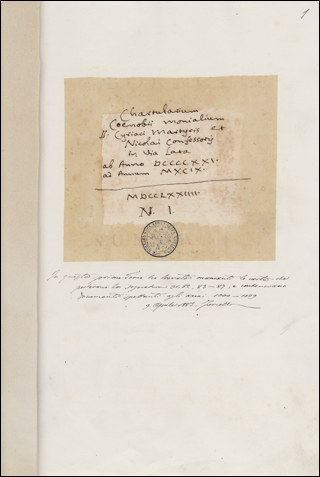 1
Chartularium
Coenobii Monialium
S. Cyriaci Martyris et
Nicolai Confessoris
in Via Lata
ab Anno DCCCCXXI.
ad Annum MXCIX.
MDCCLXXIIII.
N. I.
In questo primo Tomo ho
portavano la segnatura 82, 83-87, e contenevano
documenti spettanti agli anni 1000-1099
9 Aprile 1883